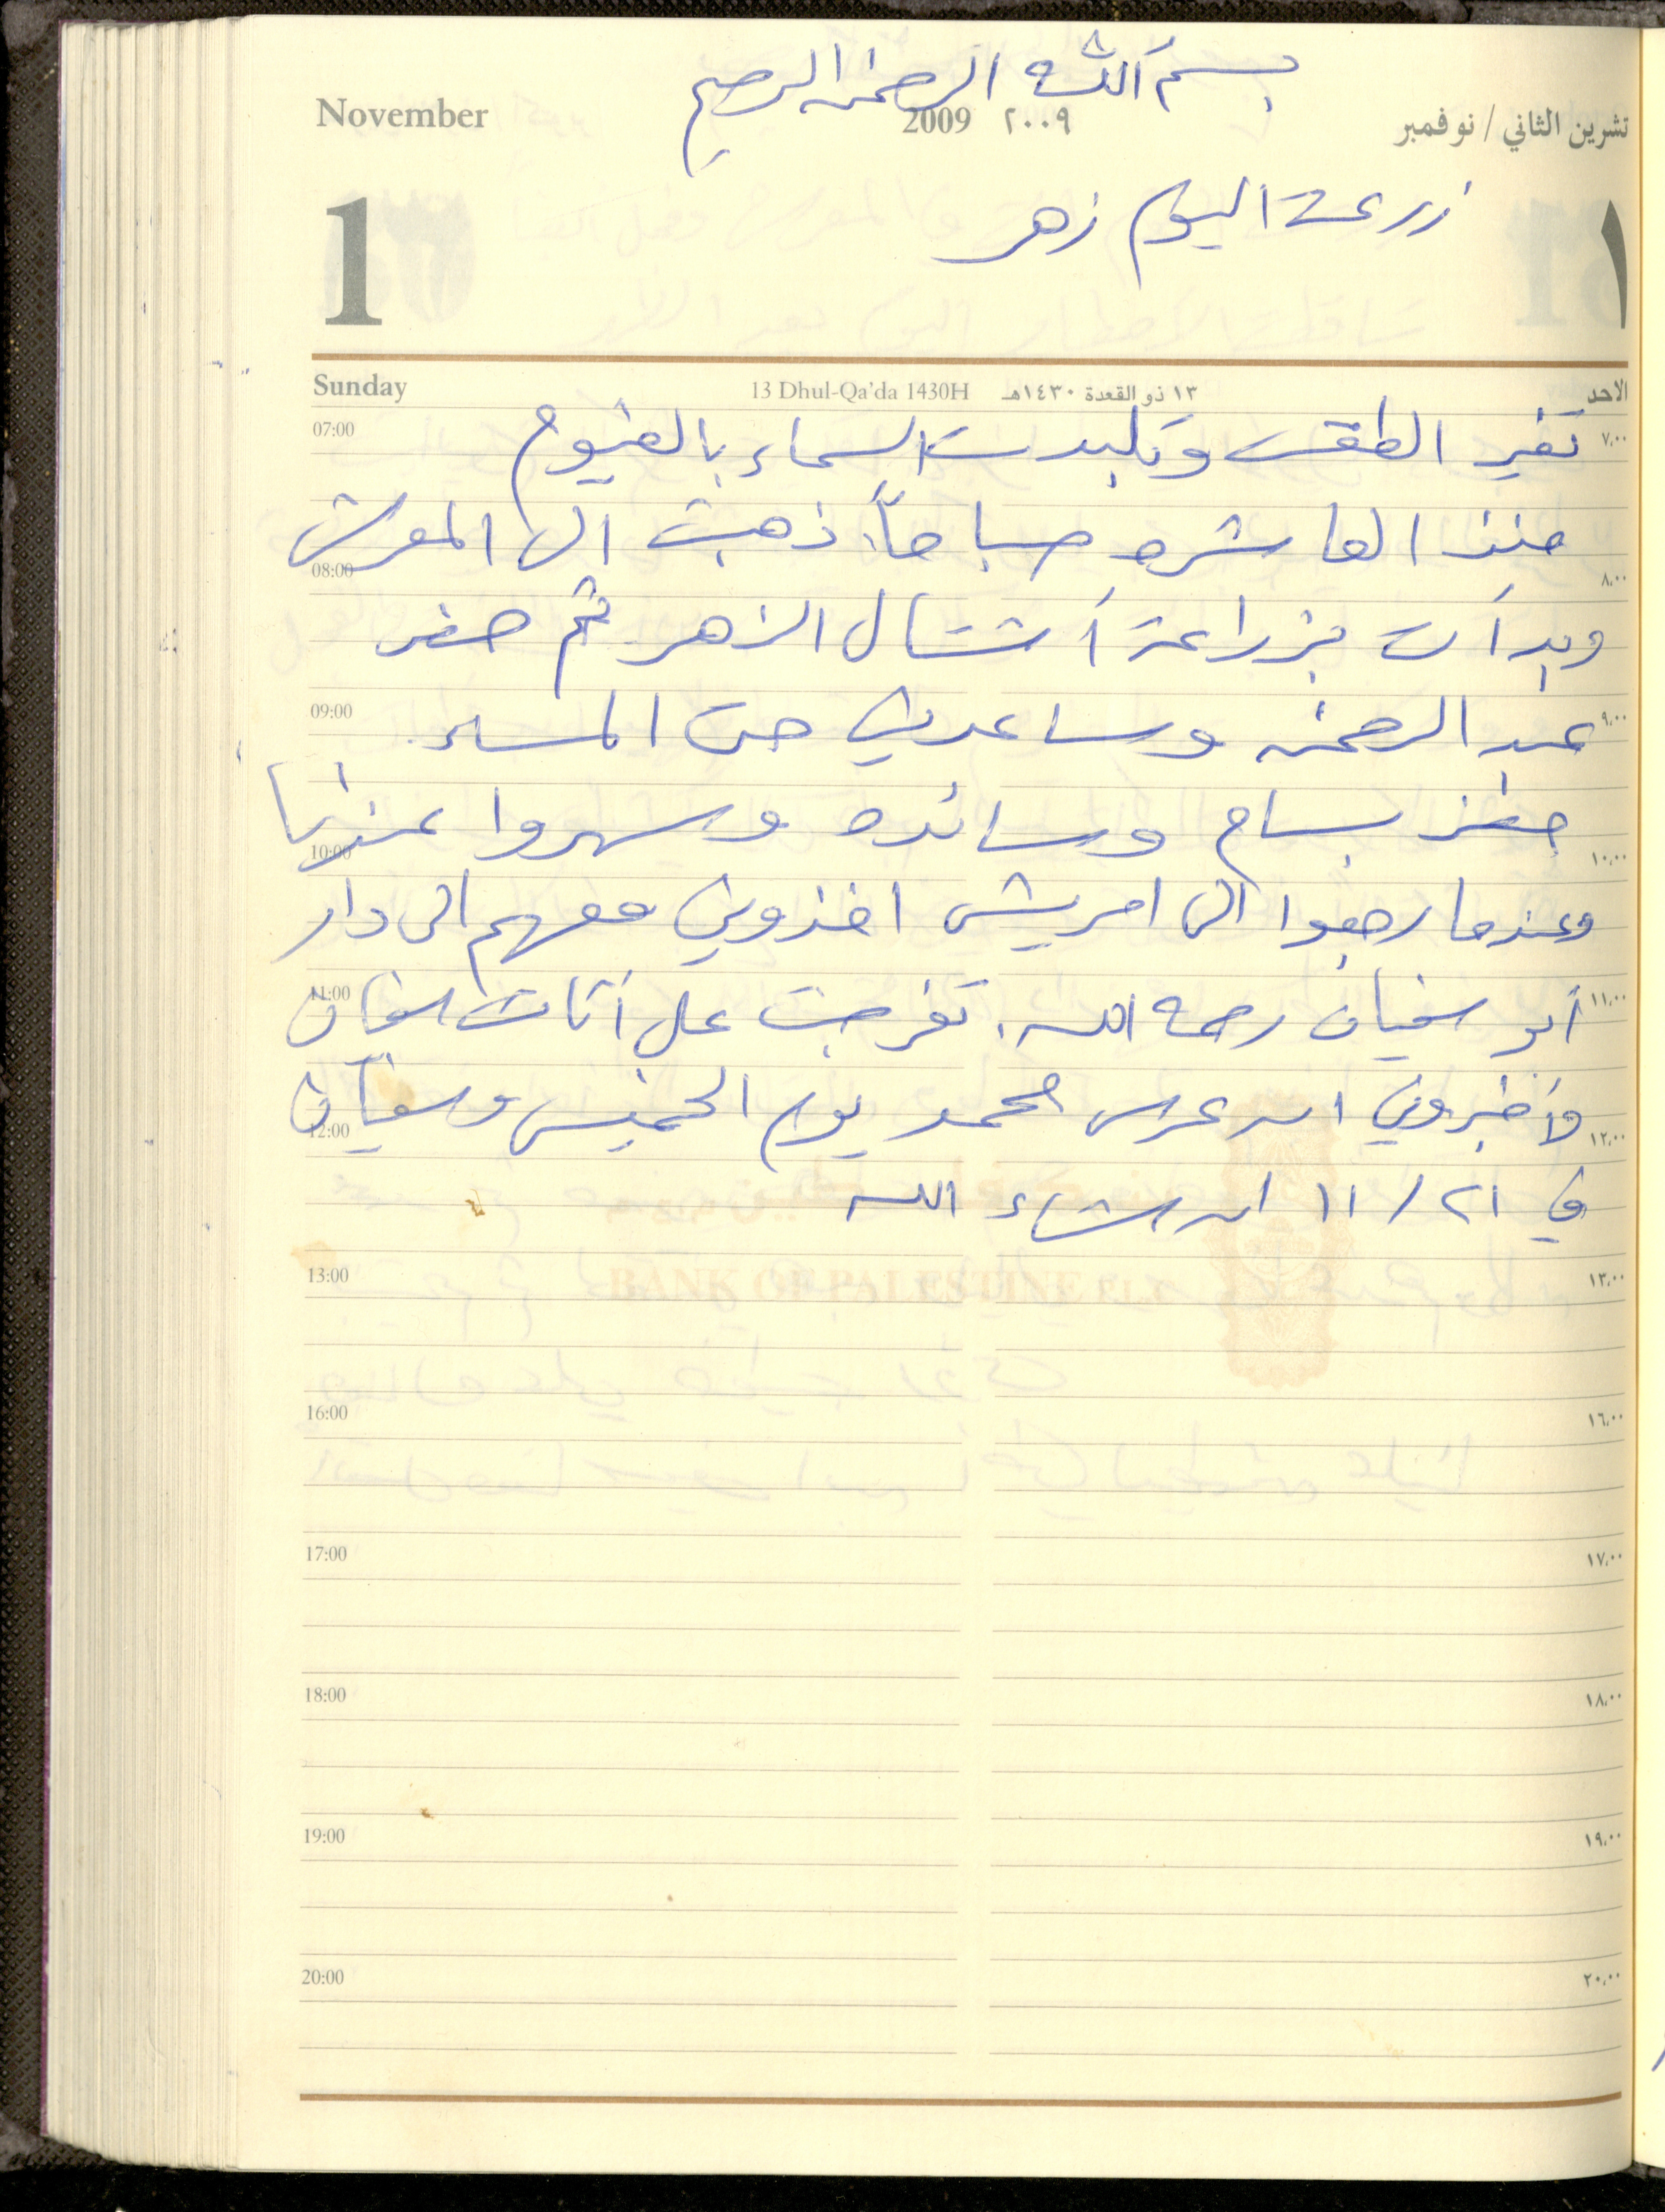 بسم الله الرحمن الرحيم
November 2009 ٢٠٠٩ تشرين الثاني / نوفمبر
زرعت اليوم زهر
1 ١
Sunday 13 Dhul-Qa'da 1430H ١٣ ذو القعدة ١٤٣٠هـ الاحد
07:00 تغير الطقس وتلبدت السماء بالغيوم ٧,٠٠
منذ العاشره صباحاً. ذهبت الى المعرش
08:00 ٨,٠٠
وبدأت بزراعة أشتال الزهر ثم حضر
09:00 عبد الرحمن وساعدني حتى المساء. ٩,٠٠
حضر بسام وسائده وسهروا عندنا
10:00 ١٠,٠٠
وعندما رجعوا الى امريش اخذوني معهم الى دار
11:00 أبو سفيان رحمه الله. تفرجت على أثاث سفيان ١١,٠٠
وأخبروني ان عرس محمد يوم الخميس وسفيان
12:00 ١٢,٠٠
في ٢١ / ١١ ان شاء الله
BANK OF PALESTINE PLC
13:00 ١٣,٠٠
16:00 ١٦,٠٠
17:00 ١٧,٠٠
18:00 ١٨,٠٠
19:00 ١٩,٠٠
20:00 ٢٠,٠٠